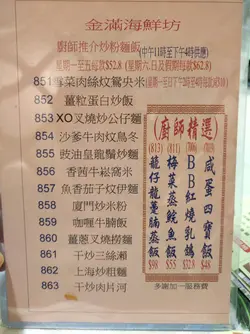 金滿海鮮坊
廚師推介炒粉麵飯(中午11時至下午4時供應)
星期一至五每款$52.8 星期六日及假期每款$62.8
851 雪菜肉絲炆鴛央米(星期一至日下午3時至4時每款$39.8)
852 薑粒蛋白炒飯
853 XO叉燒炒公仔麵
854 沙爹牛肉炆烏冬
855 豉油皇龍鬚炒麵
856 香茜牛崧窩米
857 魚香茄子炆伊麵
858 廈門炒米粉
859 咖喱牛腩飯
860 薑蔥叉燒撈麵
861 干炒三絲瀨
862 上海炒粗麵
863 干炒肉片河
(廚師精選)
(813) 龍仔龍躉腩蒸飯 $98
(811) 梅菜蒸鯇魚飯 $55
(7006) BB紅燒乳鴿 $32.8
(7009) 咸蛋四寶飯 $48
多謝加一服務費